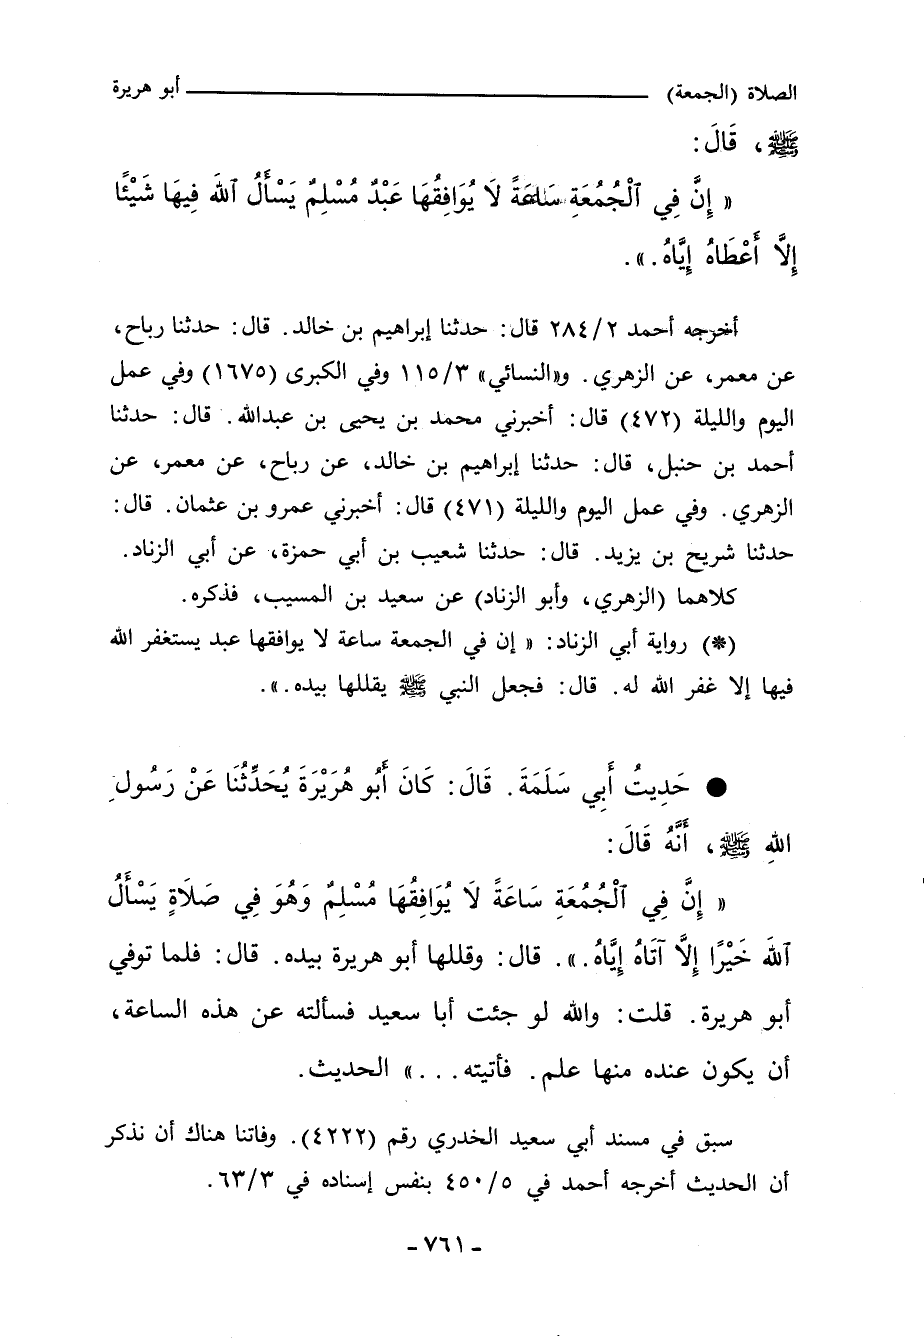 الصلاة (الجمعة) ـــــــــــــــــــــــــــــــــــــــــــــ أبو هريرة
ﷺ، قَالَ:
« إِنَّ فِي ٱلْجُمُعَةِ سَاعَةً لَا يُوَافِقُهَا عَبْدٌ مُسْلِمٌ يَسْأَلُ ٱللهَ فِيهَا شَيْئًا
إِلَّا أَعْطَاهُ إِيَّاهُ. ».
أخرجه أحمد ٢٨٤/٢ قال: حدثنا إبراهيم بن خالد. قال: حدثنا رباح،
عن معمر، عن الزهري. و«النسائي» ١١٥/٣ وفي الكبرى (١٦٧٥) وفي عمل
اليوم والليلة (٤٧٢) قال: أخبرني محمد بن يحيى بن عبدالله. قال: حدثنا
أحمد بن حنبل، قال: حدثنا إبراهيم بن خالد، عن رباح، عن معمر، عن
الزهري. وفي عمل اليوم والليلة (٤٧١) قال: أخبرني عمرو بن عثمان. قال:
حدثنا شريح بن يزيد. قال: حدثنا شعيب بن أبي حمزة، عن أبي الزناد.
كلاهما (الزهري، وأبو الزناد) عن سعيد بن المسيب، فذكره.
(*) رواية أبي الزناد: « إن في الجمعة ساعة لا يوافقها عبد يستغفر الله
فيها إلا غفر الله له. قال: فجعل النبي ﷺ يقللها بيده. ».
● حَدِيثُ أَبِي سَلَمَةَ. قَالَ: كَانَ أَبُو هُرَيْرَةَ يُحَدِّثُنَا عَنْ رَسُولِ
اللهِ ﷺ، أَنَّهُ قَالَ:
« إِنَّ فِي ٱلْجُمُعَةِ سَاعَةً لَا يُوَافِقُهَا مُسْلِمٌ وَهُوَ فِي صَلَاةٍ يَسْأَلُ
ٱللهَ خَيْرًا إِلَّا آتَاهُ إِيَّاهُ. ». قال: وقللها أبو هريرة بيده. قال: فلما توفي
أبو هريرة. قلت: والله لو جئت أبا سعيد فسألته عن هذه الساعة،
أن يكون عنده منها علم. فأتيته...» الحديث.
سبق في مسند أبي سعيد الخدري رقم (٤٢٢٢). وفاتنا هناك أن نذكر
أن الحديث أخرجه أحمد في ٤٥٠/٥ بنفس إسناده في ٦٣/٣.
- ٧٦١ -